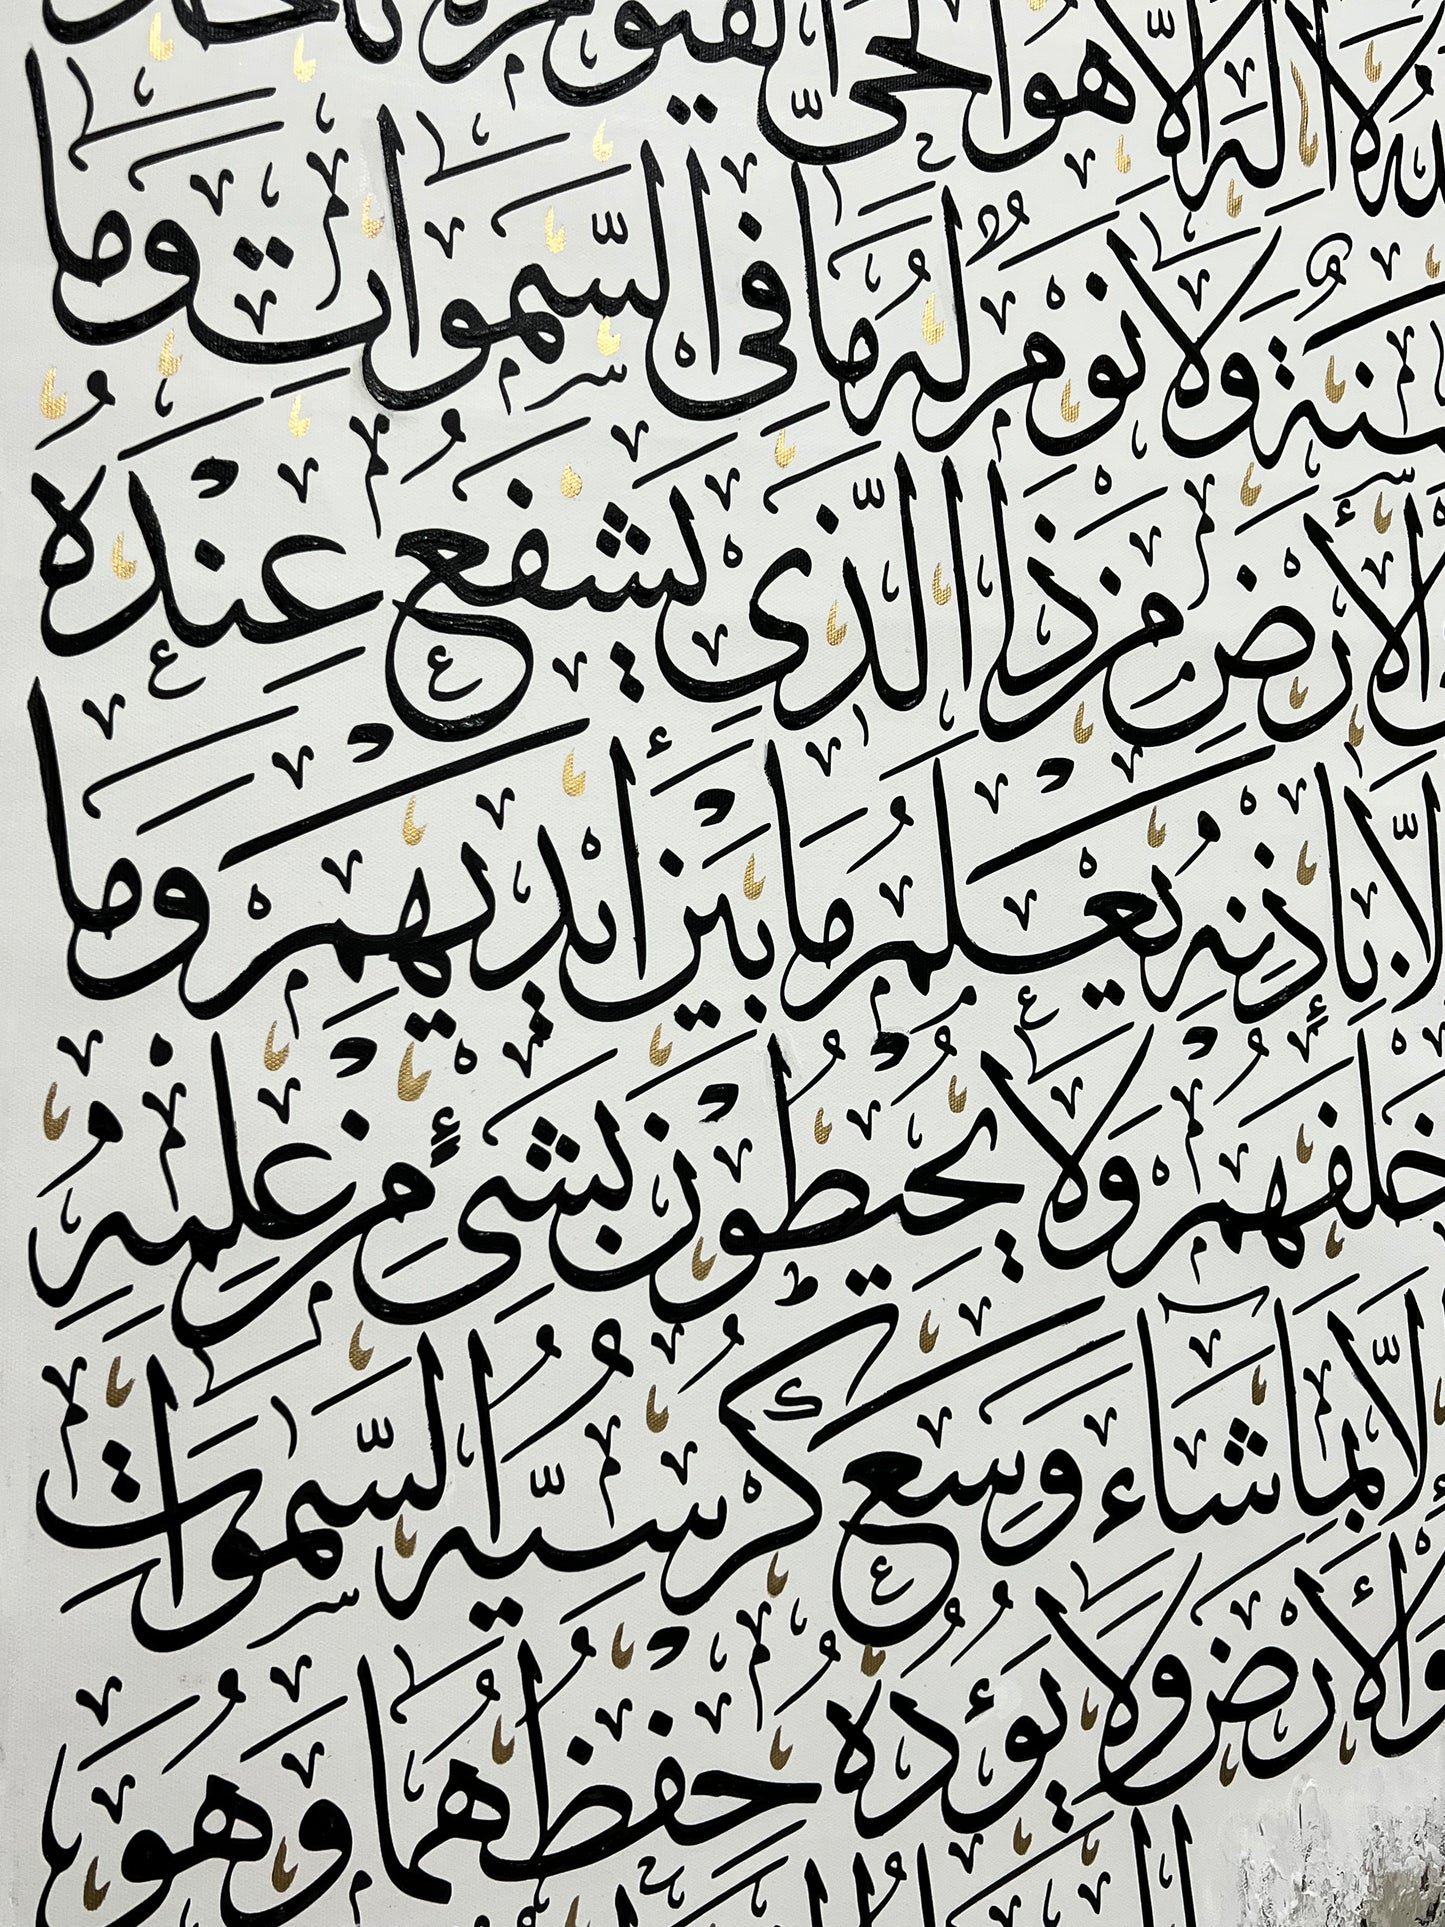 الله لا إله إلا هو الحي القيوم لا تأخذه
سنة ولا نوم له ما في السموات وما
الأرض من ذا الذي يشفع عنده
إلا بإذنه يعلم ما بين أيديهم وما
خلفهم ولا يحيطون بشيء من علمه
إلا بما شاء وسع كرسيه السموات
والأرض ولا يؤده حفظهما وهو